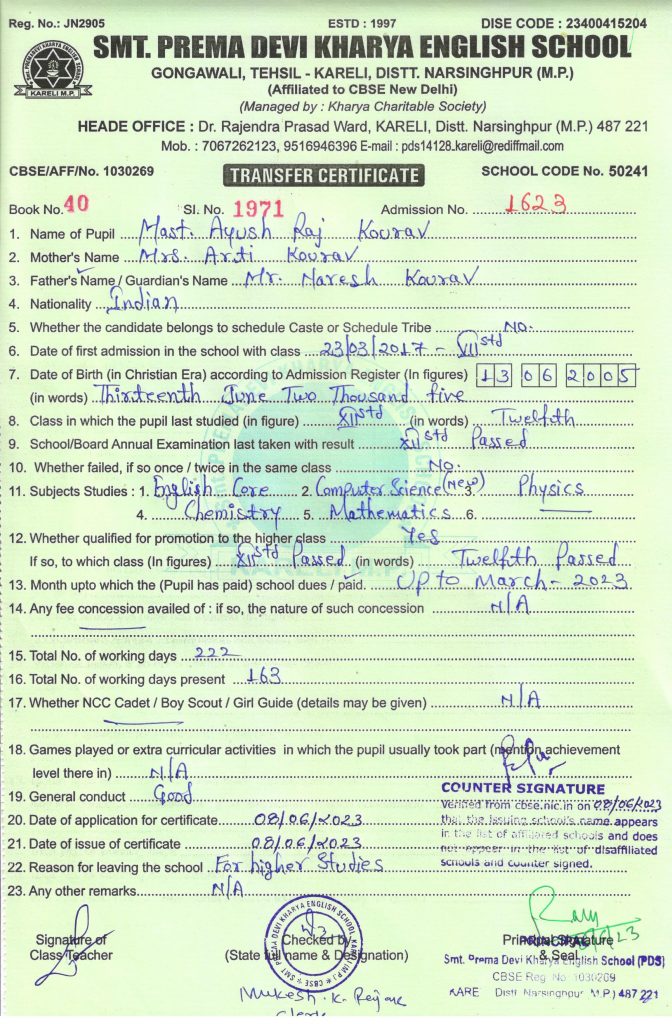 Reg. No.: JN2905 ESTD : 1997 DISE CODE : 23400415204
SMT. PREMA DEVI KHARYA ENGLISH SCHOOL
KARELI M.P.
GONGAWALI, TEHSIL - KARELI, DISTT. NARSINGHPUR (M.P.)
(Affiliated to CBSE New Delhi)
(Managed by : Kharya Charitable Society)
HEAD OFFICE : Dr. Rajendra Prasad Ward, KARELI, Distt. Narsinghpur (M.P.) 487 221
Mob. : 7067262123, 9516946396 E-mail : pds14128_kareli@rediffmail.com
CBSE/AFF/No. 1030269 TRANSFER CERTIFICATE SCHOOL CODE No. 50241
Book No. 40 Sl. No. 1971 Admission No. 1623
1. Name of Pupil Mast. Ayush Raj Kourav
2. Mother's Name Mrs. Arti Kourav
3. Father's Name / Guardian's Name Mr. Naresh Kourav
4. Nationality Indian
5. Whether the candidate belongs to schedule Caste or Schedule Tribe NO.
6. Date of first admission in the school with class 23/03/2017 - VII std
7. Date of Birth (in Christian Era) according to Admission Register (In figures) 13 06 2005
(in words) Thirteenth June Two Thousand five
8. Class in which the pupil last studied (in figure) XII std (in words) Twelfth
9. School/Board Annual Examination last taken with result XII std Passed
10. Whether failed, if so once / twice in the same class No.
11. Subjects Studies : 1. English Core 2. Computer Science (New) 3. Physics
4. Chemistry 5. Mathematics 6.
12. Whether qualified for promotion to the higher class Yes
If so, to which class (In figures) XII std Passed (in words) Twelfth Passed
13. Month upto which the (Pupil has paid) school dues / paid. Up to March - 2023
14. Any fee concession availed of : if so, the nature of such concession N/A
15. Total No. of working days 222
16. Total No. of working days present 163
17. Whether NCC Cadet / Boy Scout / Girl Guide (details may be given) N/A
18. Games played or extra curricular activities in which the pupil usually took part (mention achievement
level there in) N/A
19. General conduct Good
COUNTER SIGNATURE
Verified from cbse.nic.in on 08/06/2023
that the issuing school's name appears
in the list of affiliated schools and does
not appear in the list of disaffiliated
schools and counter signed.
20. Date of application for certificate 08/06/2023
21. Date of issue of certificate 08/06/2023
22. Reason for leaving the school For higher Studies
23. Any other remarks N/A
Signature of Class Teacher
SMT. PREMA DEVI KHARYA ENGLISH SCHOOL, KARELI M.P. CBSE
Checked by
(State full name & Designation)
Mukesh. K.
Clerk
Principal Signature
& Seal
PRINCIPAL
Smt. Prema Devi Kharya English School (PDS)
CBSE Reg. No. 1030269
KARE Distt. Narsinghpur (M.P.) 487 221